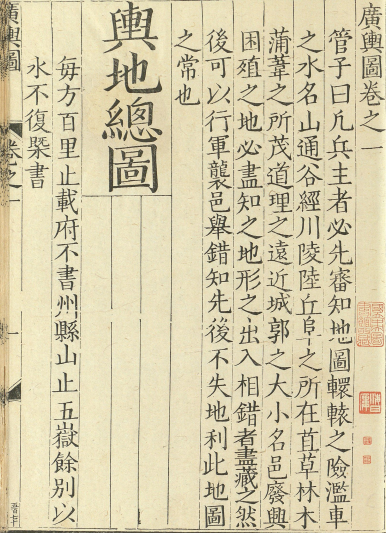 廣輿圖卷之一
管子曰凡兵主者必先審知地圖轘轅之險濫車
之水名山通谷經川陵陸丘阜之所在苴草林木
蒲葦之所茂道理之遠近城郭之大小名邑廢興
困殖之地必盡知之地形之出入相錯者盡藏之然
後可以行軍襲邑舉錯知先後不失地利此地圖
之常也
輿地總圖
每方百里止載府不書州縣山止五嶽餘別以
水不復槩書
廣輿圖
卷之一
一